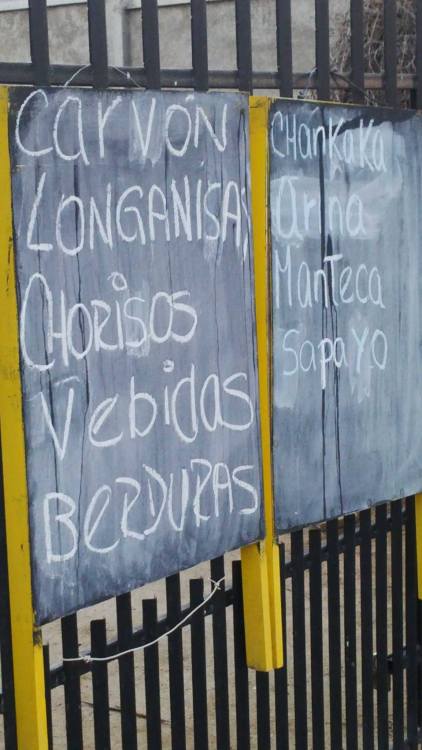 CarVÓN
LONGANISAS
CHORISOS
Vebidas
BERDURAS
CHanKaKa
arina
ManTeca
SapaYO